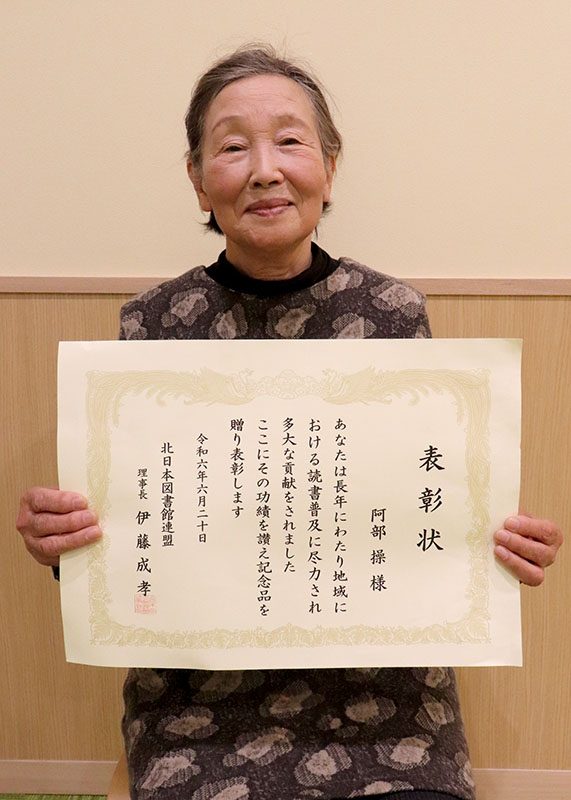 表彰状
阿部操様
あなたは長年にわたり地域に
おける読書普及に尽力され
多大な貢献をされました
ここにその功績を讃え記念品を
贈り表彰します
令和六年六月二十日
北日本図書館連盟
理事長 伊藤成孝